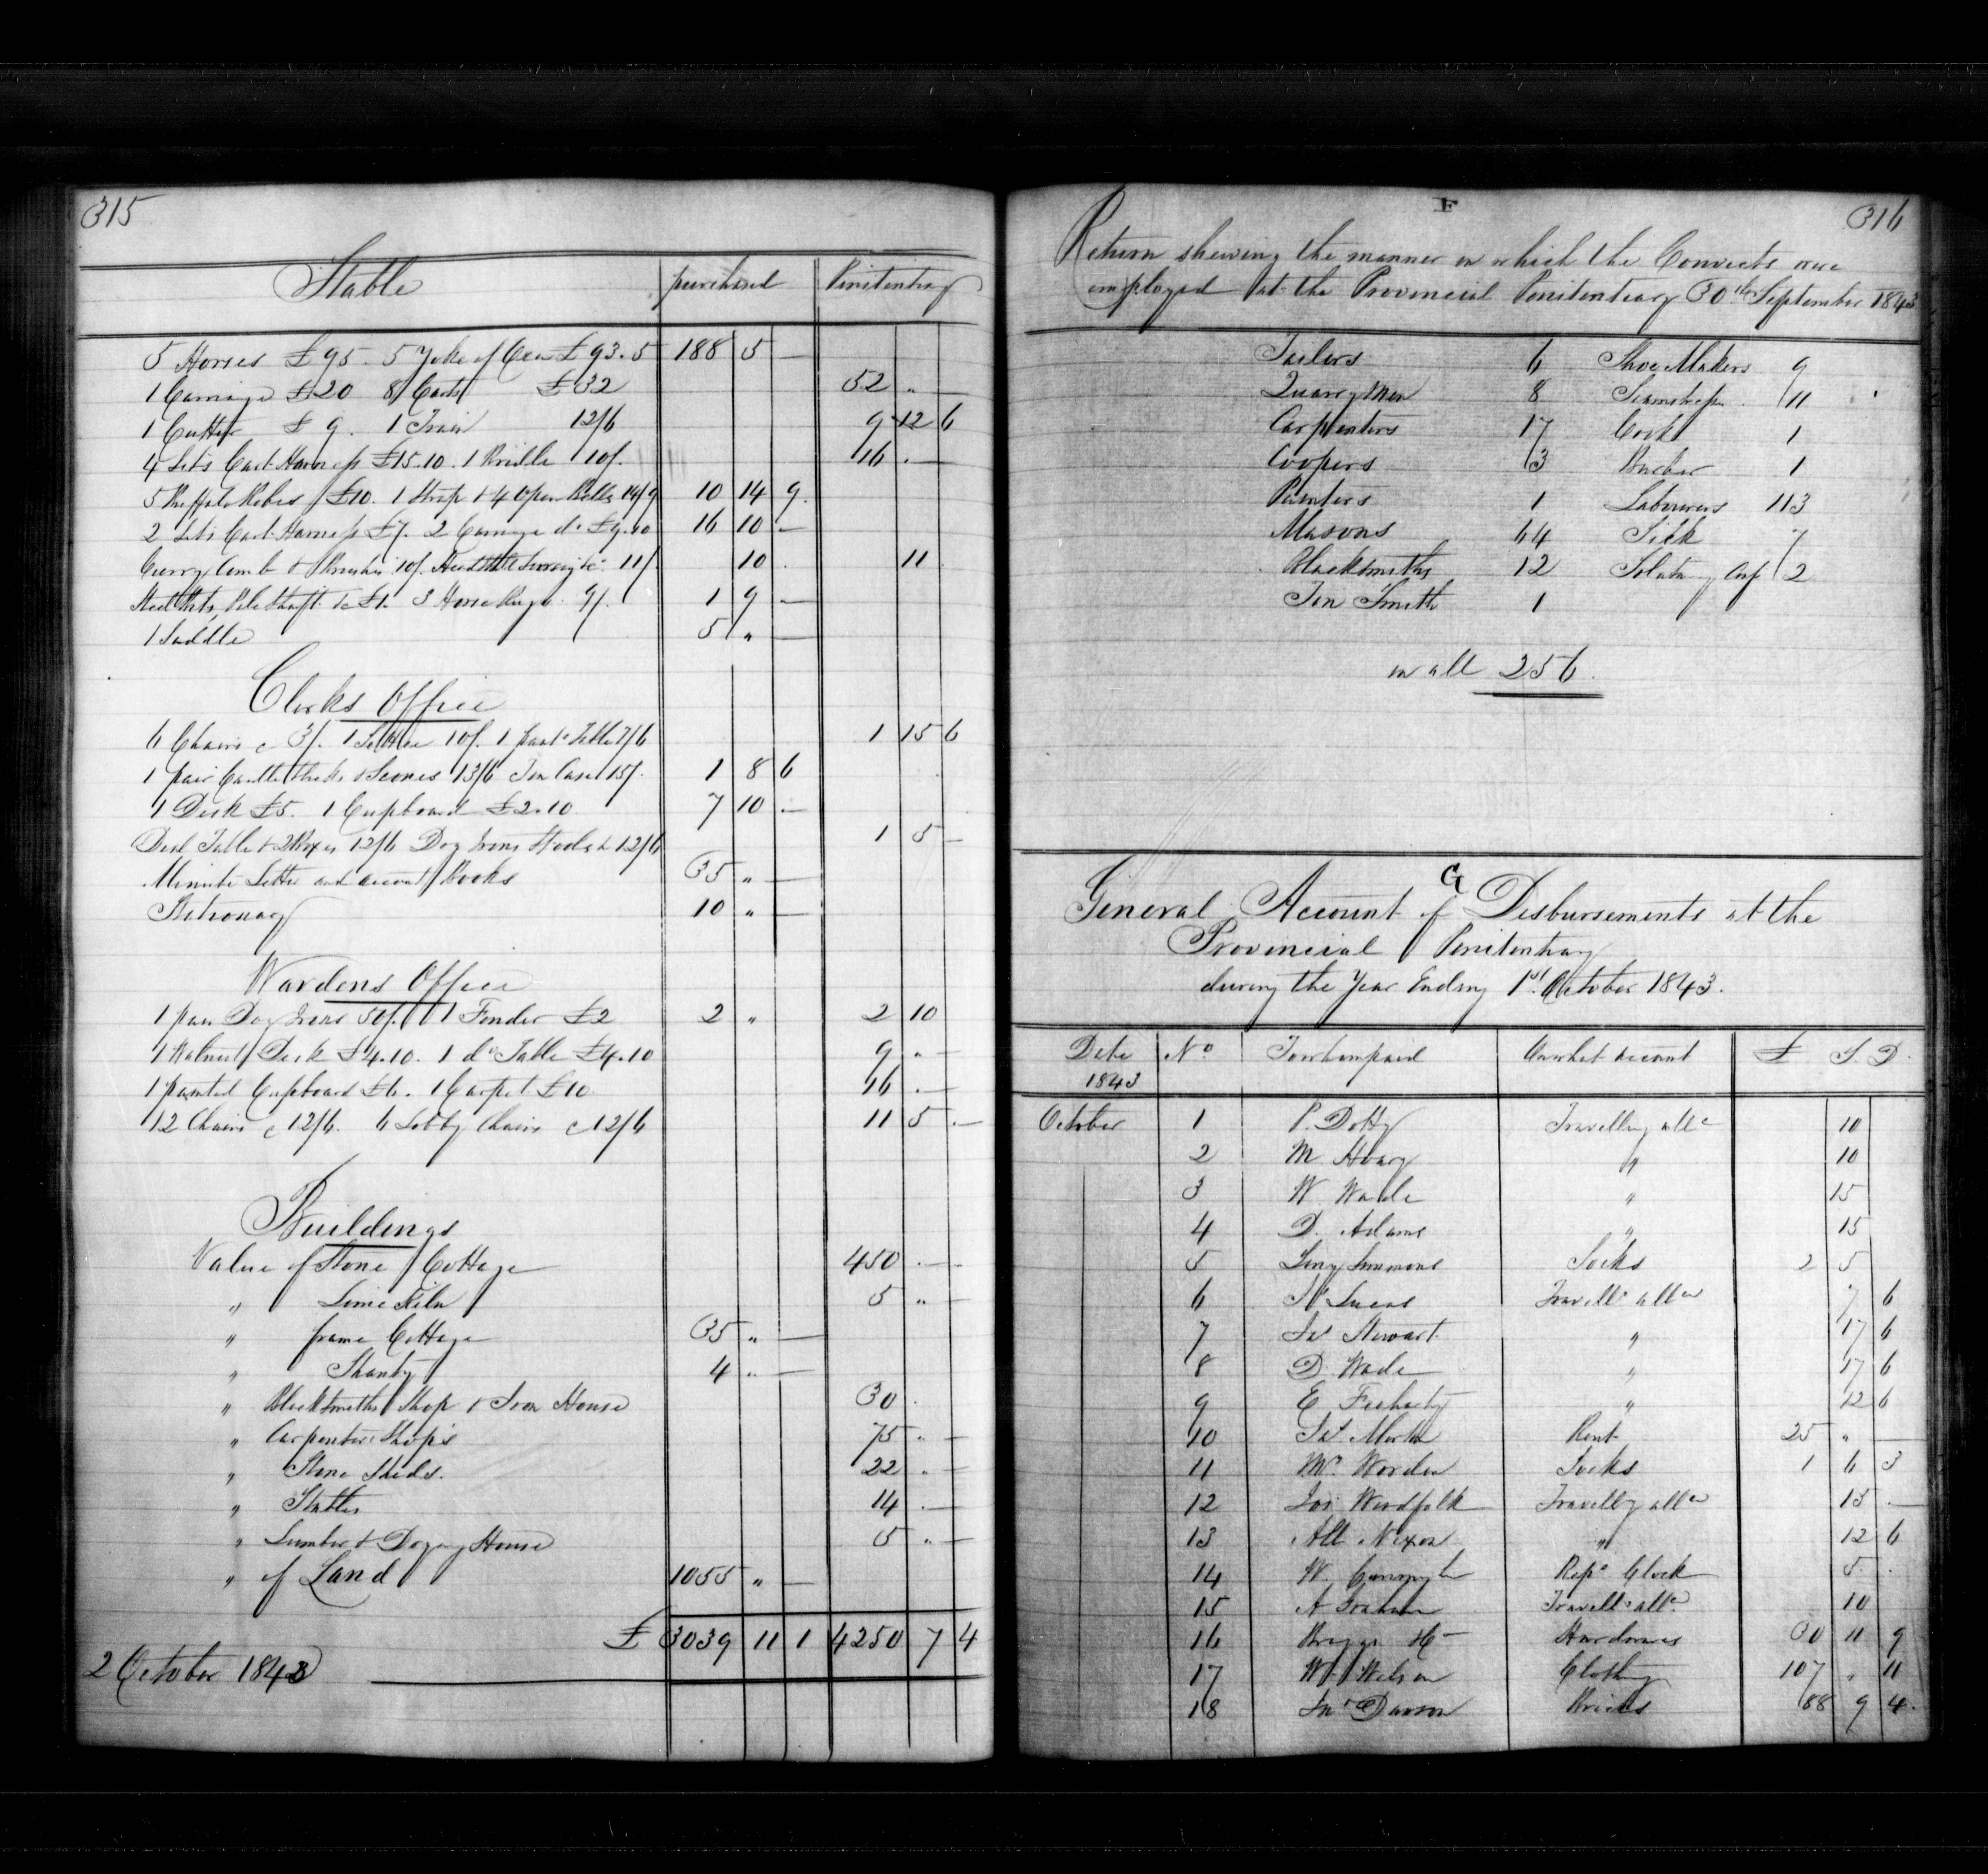 315
Stable purchased Penitentiary
5 Horses £95. 5 Yoke of Oxen £93.5 188 5 —
1 Carriage £20 8 Carts £32 52 „ —
1 Cutter £9. 1 Train 12/6 9 12 6
4 Sets Cart Harness £15.10. 1 Bridle 10/. 16 . —
5 Buffalo Robes £10. 1 Strap & 4 Open Bells 14/9 10 14 9.
2 Sets Cart Harness £7. 2 Carriage do £9.10 16 10 —
Curry Comb & Brushes 10/. 11/. 10 . 11
3 Horse Rugs 9/. 1 9 —
1 Saddle 5 „ —
Clerks Office
6 Chairs c 3/. 1 10/. 1 Table 7/6 1 15 6
1 pair Candlesticks & Sconces 13/6 Tin Case 15/. 1 8 6
1 Desk £5. 1 Cupboard £2.10 7 10 —
Deal Table & 2 Boxes 12/6 Dog Irons Stools & 12/6 1 5 —
Minute Letter and account Books 35 „ —
Stationary 10 „ —
Wardens Office
1 pair Dog Irons 50/. 1 Fender £2 2 „ 2 10
1 Walnut Desk £4.10. 1 do Table £4.10 9 „ —
1 painted Cupboard £6. 1 Carpet £10. 16 . —
12 Chairs c 12/6. 6 Lobby Chairs c 12/6 11 5 . —
Buildings
Value of Stone Cottage 450 . —
„ Lime Kiln 5 „ —
„ frame Cottage 35 „ —
„ Shanty 4 „ —
„ Blacksmiths Shop & Iron House 30 .
„ Carpenters Shops 75 „ —
„ Stone Sheds. 22 „ —
„ Stables 14 . —
„ Lumber & House 5 „ —
„ of Land 1055 „ —
£ 3039 11 1 4250 7 4
2 October 1843
F
316
Return shewing the manner in which the Convicts were
employed at the Provincial Penitentiary 30th September 1843
Tailors 6 Shoe Makers 9
Quarrymen 8 Seamstress 11
Carpenters 17 Cook 1
Coopers 3 Barber 1
Painters 1 Labourers 113
Masons 64 Sick 7
Blacksmiths 12 Solitary Conf 2
Tin Smith 1
in all 256.
G
General Account of Disbursements at the
Provincial Penitentiary
during the Year Ending 1st October 1843.
Date No To whom paid On what account £ S. D.
1843
October 1 P. Dotty Travelling allce 10
2 M. Hoary „ 10
3 W. Wade „ 15
4 D. Adams „ 15
5 Simmons Socks 2 5
6 Lucas Travellg allce 7 6
7 Jas Stewart „ 17 6
8 D. Wade „ 17 6
9 E „ 12 6
10 Jas Rent 25 „ —
11 Mr Worden Socks 1 6 3
12 Jos Woodfalk Travellg allce 15 . —
13 All Nixon „ 12 6
14 W. Repg Clock 5 .
15 A Graham Travellg allce 10
16 Briggs & Co Hardware 30 11 9
17 Wm Wilson Clothing 107 „ 11
18 Jno Dawson Bricks 88 9 4.